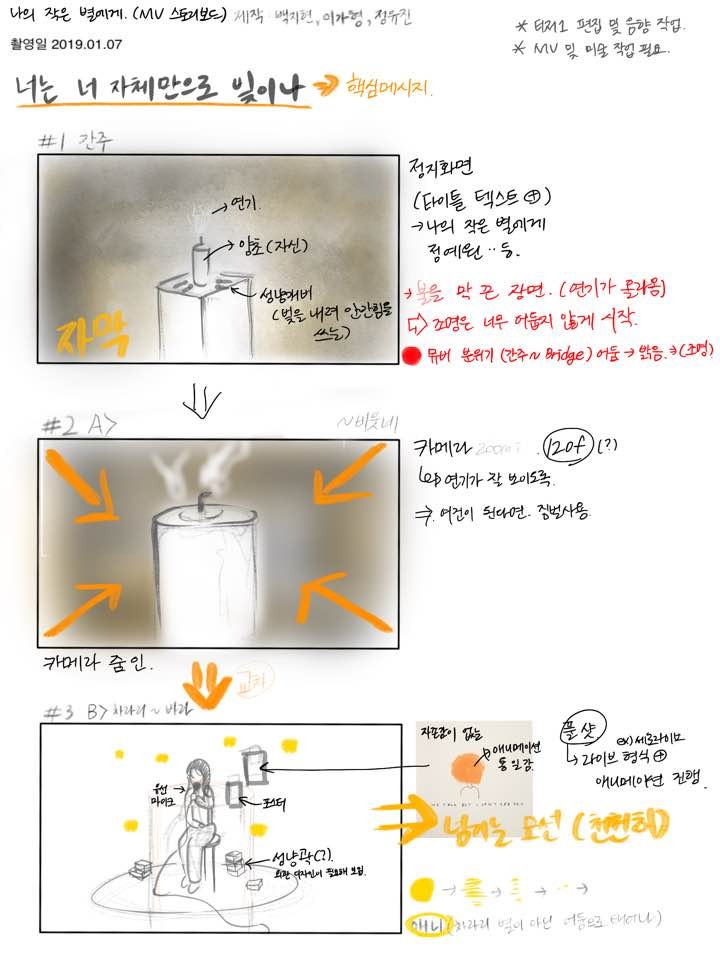 나의 작은 별에게. (MV 스토리보드) 제작 - 백지현, 이가형, 정유진
촬영일 2019.01.07
* 티저1 편집 및 음향 작업.
* MV 및 미술 작업 필요.
너는 너 자체만으로 빛이나 → 핵심메시지.
#1 간주
→연기
→양초(자신)
성냥개비
(빛을 내려 안간힘을
쓰는)
자막
정지화면
(타이틀 텍스트 ⊕)
→나의 작은 별에게
정예원 ‥등.
→불을 막 끈 장면. (연기가 올라옴)
⇨ 조명은 너무 어둡지 않게 시작.
뮤비 분위기 (간주~Bridge) 어둠 → 밝음. ⇒ (조명)
#2 A>
~비춧네
카메라 zoom . 120f (?)
↳ 연기가 잘 보이도록.
⇒. 여건이 된다면. 짐벌사용.
카메라 줌인.
교차
#3 B> 차라리~바라
유선
마이크
포스터
성냥곽(?)
자존감이 없는
애니메이션
통일감.
풀샷
ex) 세로라이브
↳ 라이브 형식 ⊕
애니메이션 진행.
넘기는 모션 (천천히)
애니 (차라리 별이 아닌 어둠으로 태어나)